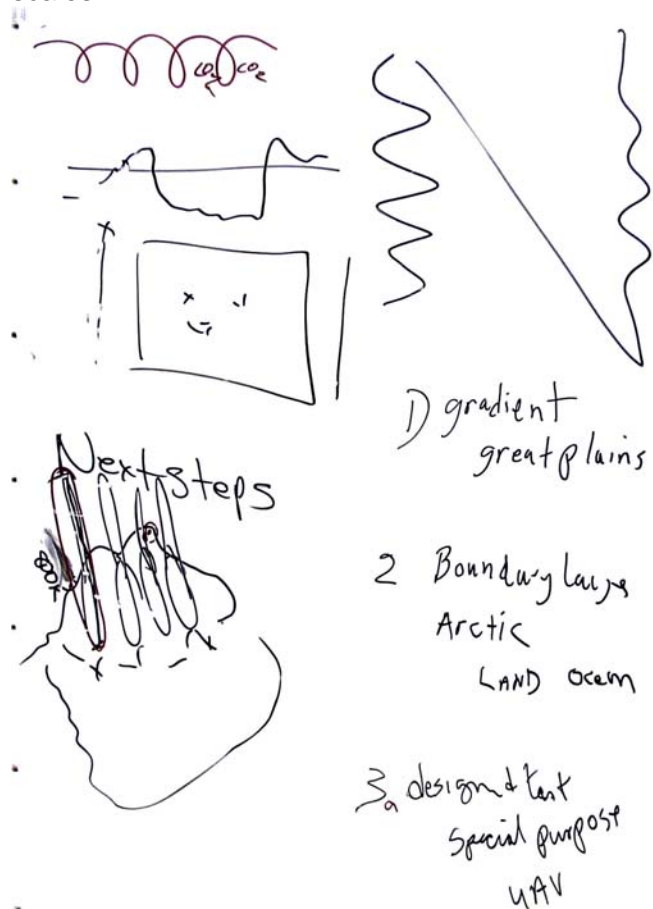 CO2 CO2
Next steps
1) gradient
great plains
2 Boundary layer
Arctic
LAND Ocean
3. design & test
special purpose
UAV